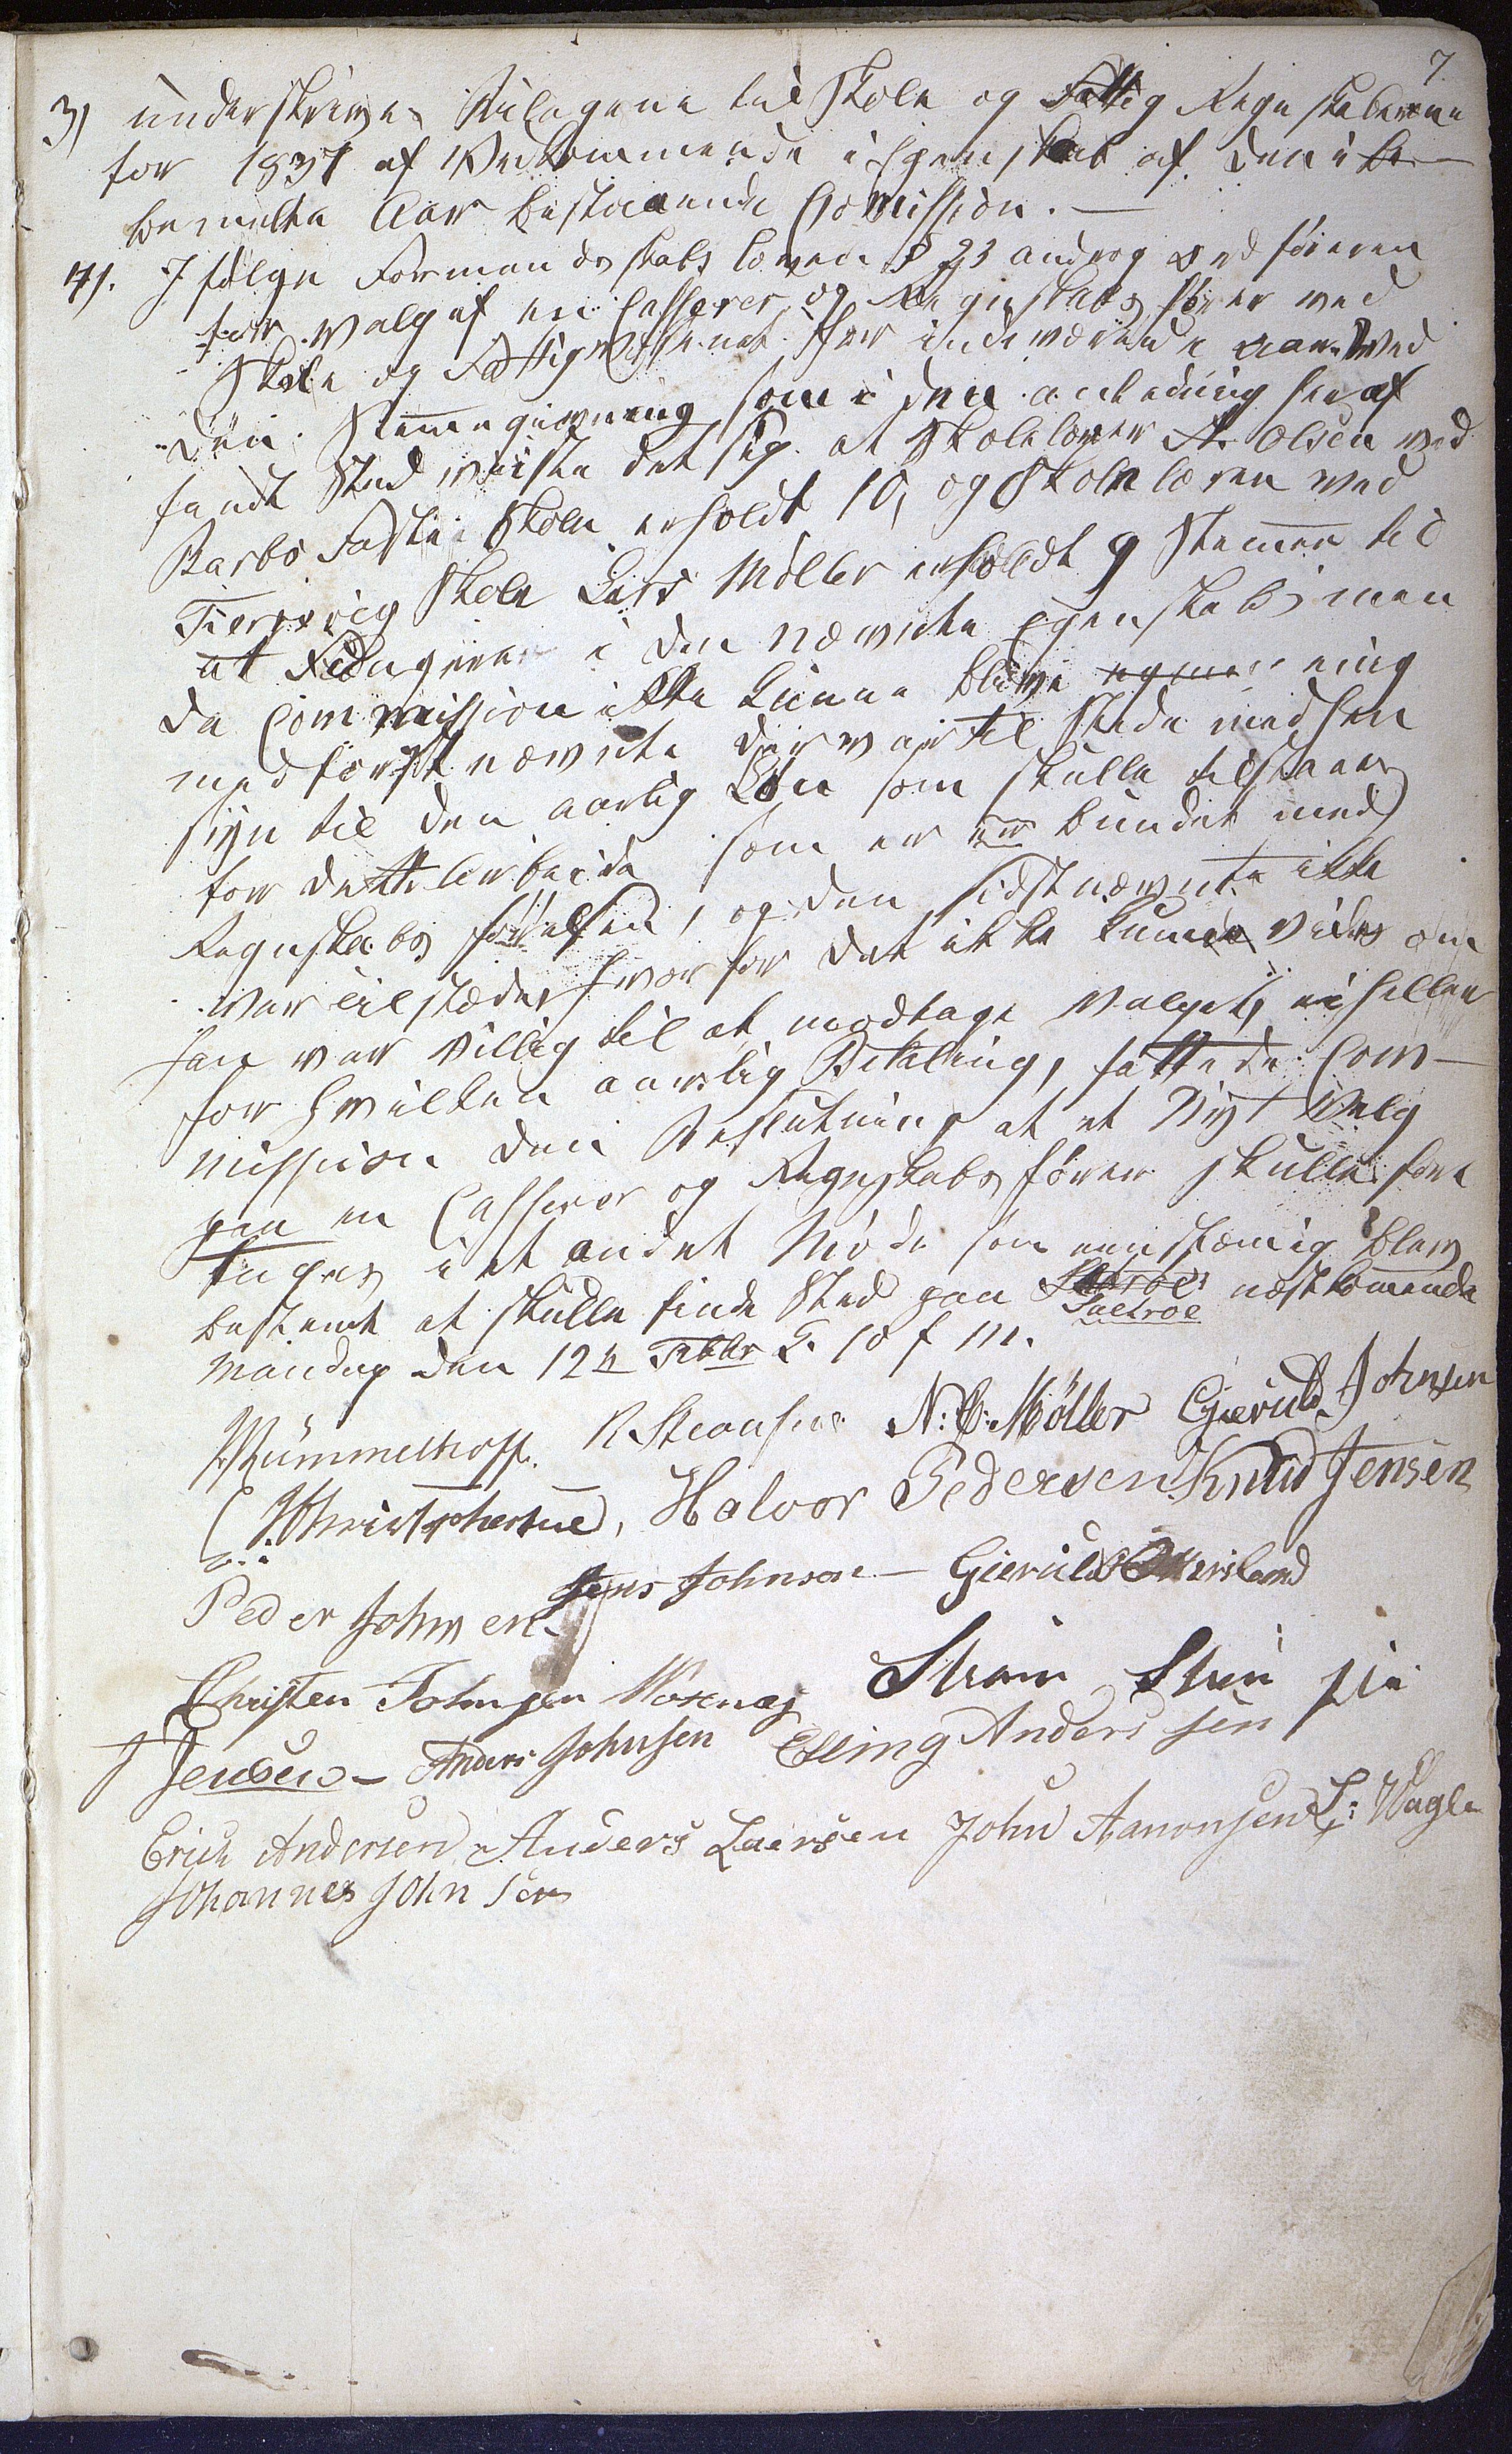 7.
3) underskrives Bilagene til Skole og Fattig Regnskaberne
for 1837 af Vedkommende i Egenskab af den i be-
bemelte Aar bestaaende Commission. —
4). I følge Formandskabs loven § 23 androg Ordføreren
for Valg af en Casserer og Regnskabs fører ved
Skole og Fattigvæsenet for indeværende Aar. Ved
den Stemmegivning som i den anledning her af
fandt Sted viiste det sig at Skolelærer A. Olsen ved
Barbo Faste Skole erholdt 10, og Skolelæren ved
Tiersvig Skole Lars Möller erholdt 9 Stemmer til
at Fungere i den nævnte Egenskab, men
da Commission ikke kunne blive eenig
med førstnævnte der var til stede med hen
syn til den aarlig Løn som skulle tilstaaes
for dette Arbeide som er forbundet med
Regnskabs førelsen, og den sidstnævnte ikke
var tilstæde hvorfor det ikke kunde vides om
han var villig til at modtage Valget, ei heller
for hvilken aarlig Betaling, fattede Com-
mission den Beslutning at et Nyt Valg
paa en Casserer og Regnskabs fører skulle fore
tages i et andet Møde som eenstemig blev
bestemt at skulle finde Sted paa Saltrøe næstkommende
Mandag den 12te Febbr K. 10 f M.
Mümmelhoff. N. C. Möller Gierulf Johnsen
Christophersen, Halvor Pedersen Knud Jensen
Peder Johnsen Jens Johnson — Gieruld
Christen Johnsen
Jensen — Anders Johnsen Elling Andersen
Erich Andersen Anders Larsen John Aanonsen L: Wagle
Johannes Johnsen